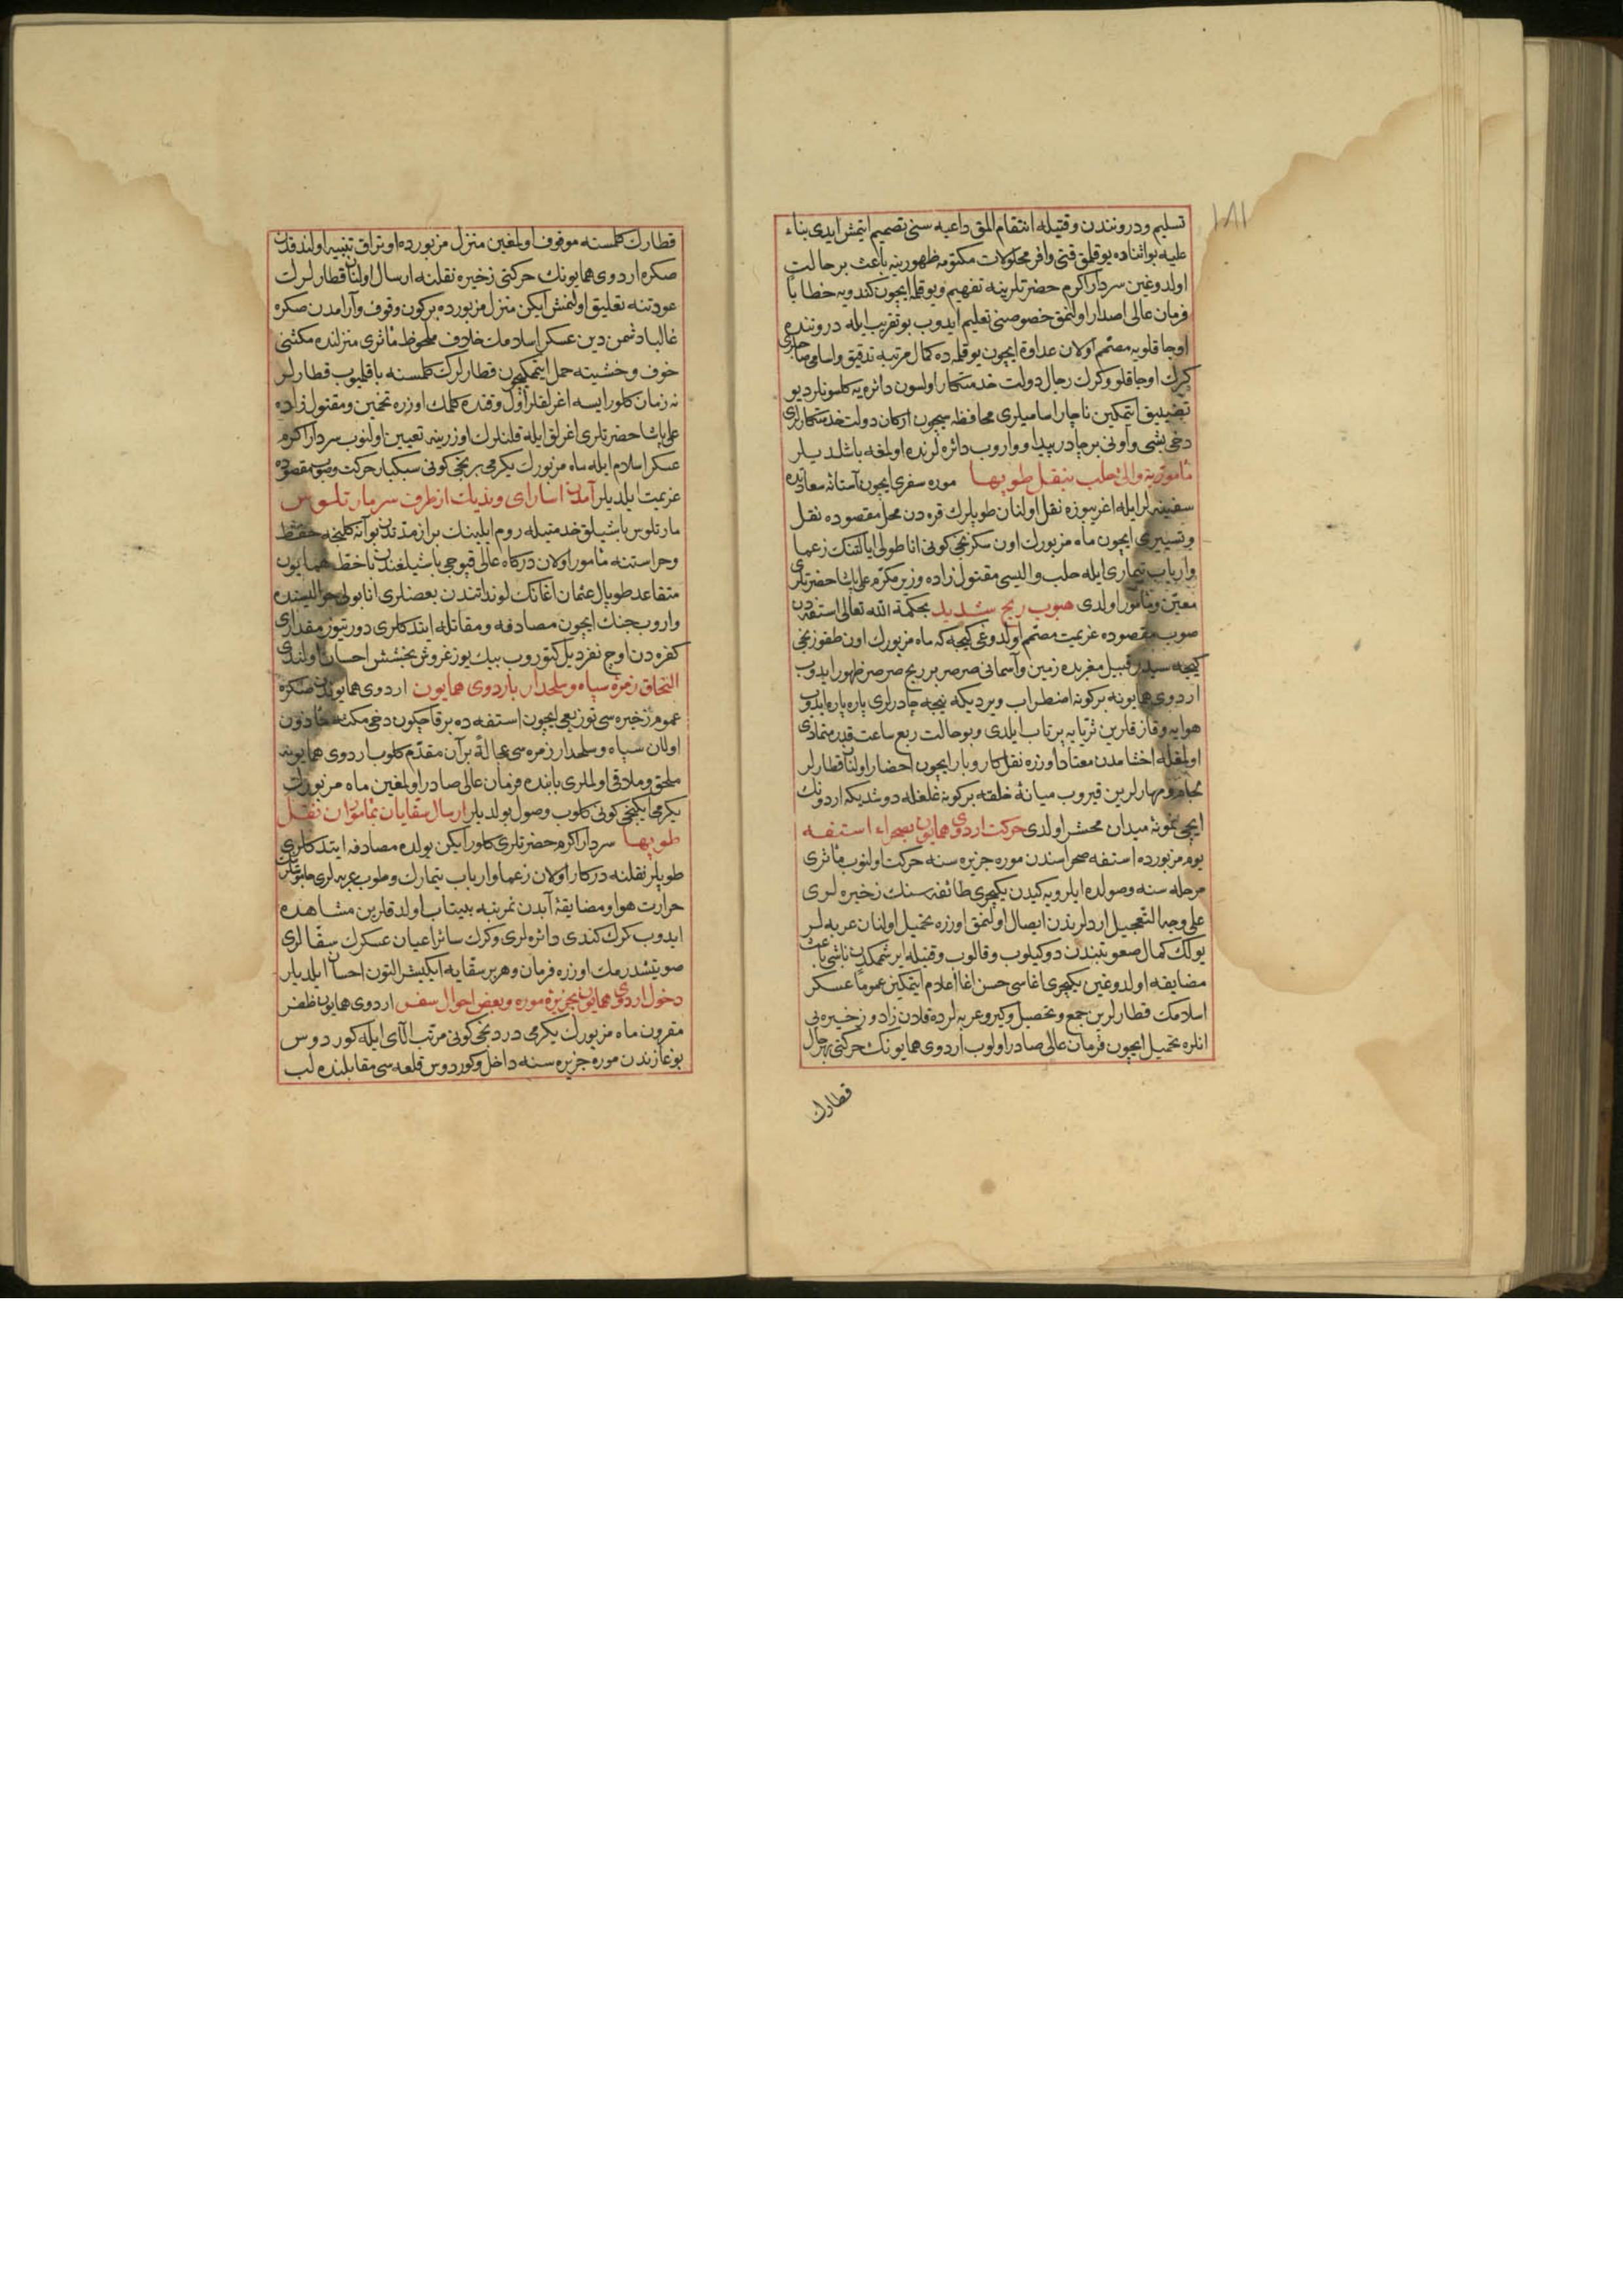 ١٨١
تسليم ودرونندن وقتيله انتقام المق داعيه سنی تصميم ايتمش ايدی بناء
عليه بو اثناده يوقلق قتی وافر محلولات مكتومه ظهورينه باعث بر حالت
اولدوغين سردار اكرم حضرتلرينه تفهيم ويوقلمه ايچون كندويه خطابا
فرمان عالی اصدار اولنمق خصوصنی تعليم ايدوب بو تقريب ايله دروننده
اوجاقلويه مصمم اولان عداوة ايچون يوقلمه ده كمال مرتبه تدقيق واسامی صاحبلری
كرك اوجاقلو وكرك رجال دولت خدمتكار اولسون دائره يه كلسونلر ديو
تضييق ايتمكين ناچار اساميلری محافظه سيچون اركان دولت خدمتكارلری
دخی بشی واونی بر چادر پيدا وواروب دائره لرنده اولمغه باشلديلر
مأموريت والی حلب بنقل طوپها موره سفری ايچون آستانه سعادتدن
سفينه لر ايله اغريبوزه نقل اولنان طوپلرك قره دن محل مقصوده نقل
وتسييری ايچون ماه مزبورك اون سكزنجی كونی اناطولی ايالتنك زعما
وارباب تيماری ايله حلب واليسی مقتول زاده وزير مكرم علی پاشا حضرتلری
معين ومأمور اولدی هبوب ريح شديد بحكمة الله تعالی استفه دن
صوب مقصوده عزيمت مصمم اولدوغی كيجه كه ماه مزبورك اون طقوزنجی
كيجه سيدر قبيل مغربده زمين وآسمانی صرصر بر ريح صرصر ظهور ايدوب
اردوی همايونه بر كونه اضطراب ويرديكه نيجه چادرلری پاره پاره ايدوب
هوايه وقازقلرين ثريايه پرتاب ايلدی وبو حالت ربع ساعت قدر متمادی
اولمغله اخشامدن معتاد اوزره نقل كاروبار ايچون احضار اولنان قطارلر
لجام ومهارلرين قيروب ميانه خلقه بر كونه غلغله دوشديكه اردونك
ايچی نمونه ميدان محشر اولدی حركت اردوی همايون بصحراء استفه
يوم مزبورده استفه صحراسندن موره جزيره سنه حركت اولنوب مأثری
مرحله سنه وصولده ايلرويه كيدن يكيچری طائفه سنك زخيره لری
علی وجه التعجيل اردلرندن ايصال اولنمق اوزره تحميل اولنان عربه لر
يولك كمال صعوبتندن دوكيلوب وقالوب وقتيله ايرشمكدن ناشی باعث
مضايقه اولدوغين يكيچری اغاسی حسن اغا اعلام ايتمكين عموما عسكر
اسلامك قطارلرين جمع وتحصيل وكيرو عربه لرده قلان زاد وزخيره يی
انلره تحميل ايچون فرمان عالی صادر اولوب اردوی همايونك حركتی بهرحال
قطارك
قطارك كلمسنه موقوف اولمغين منزل مزبورده اوتراق تنبيه اولندقدن
صكره اردوی همايونك حركتی زخيره نقلنه ارسال اولنان قطارلرك
عودتنه تعليق اولنمش ايكن منزل مزبورده بر كون وقوف وآرامدن صكره
غالبا دشمن دين عسكر اسلامك خلاف ملحوظ مأثری منزلنده مكثنی
خوف وخشيته حمل ايتمكيچون قطارلرك كلمسنه باقلميوب قطارلر
نه زمان كلور ايسه اغرلقلر اول وقنده كلمك اوزره تخمين ومقتول زاده
علی پاشا حضرتلری اغرلق ايله قلنلرك اوزرينه تعيين اولنوب سردار اكرم
عسكر اسلام ايله ماه مزبورك يكرمی برنجی كونی سبكبار حركت وصوب مقصوده
عزيمت ايلديلر آمدن اسارای ونديك از طرف سر مارتلوس
مارتلوس باشيلق خدمتيله روم ايلينك بر از مدتدن بو آنه كلنجه حفظ
وحراستنه مأمور اولان دركاه عالی قپوجی باشيلغندن با خط همايون
متقاعد طوپال عثمان اغانك لونداتندن بعضلری انابولی حواليسنده
واروب جنك ايچون مصادفه ومقاتله ايتدكلری دورتيوز مقداری
كفره دن اوچ نفر ديل كتوروب بيك يوز غروش بخشش احسان اولندی
التحاق زمره سپاه وسلحدار باردوی همايون اردوی همايوندن صكره
عموم زخيره سی توزيعی ايچون استفه ده بر قاچ كون دخی مكثه مأذون
اولان سپاه وسلحدار زمره سی عجالة بر آن مقدم كلوب اردوی همايونه
ملحق وملاقی اولملری بابنده فرمان عالی صادر اولمغين ماه مزبورك
يكرمی ايكنجی كونی كلوب وصول بولديلر ارسال سقايان بمأموران نقل
طوپها سردار اكرم حضرتلری كلور ايكن يولده مصادفه ايتدكلری
طوپلر نقلنه دركار اولان زعما وارباب تيمارك وطوب عربه لری جاموسلرينك
حرارت هوا ومضايقه آبدن نمرتبه بيتاب اولدقلرين مشاهده
ايدوب كرك كندی دائره لری وكرك سائر اعيان عسكرك سقالری
صو يتشدرمك اوزره فرمان وهر بر سقايه ايكيشر التون احسان ايلديلر
دخول اردوی همايون بجزيره موره وبعض احوال سفر اردوی همايون ظفر
مقرون ماه مزبورك يكرمی دردنجی كونی مرتب الای ايله كوردوس
بوغازندن موره جزيره سنه داخل وكوردوس قلعه سی مقابلنده لب